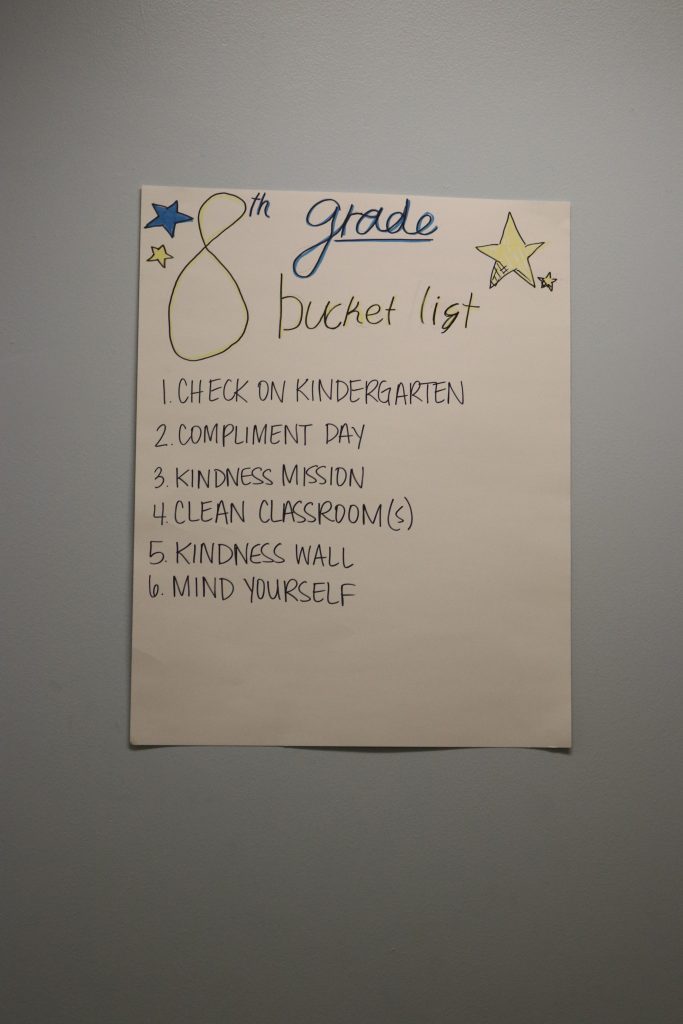 8th grade
bucket list
1. CHECK ON KINDERGARTEN
2. COMPLIMENT DAY
3. KINDNESS MISSION
4. CLEAN CLASSROOM(s)
5. KINDNESS WALL
6. MIND YOURSELF